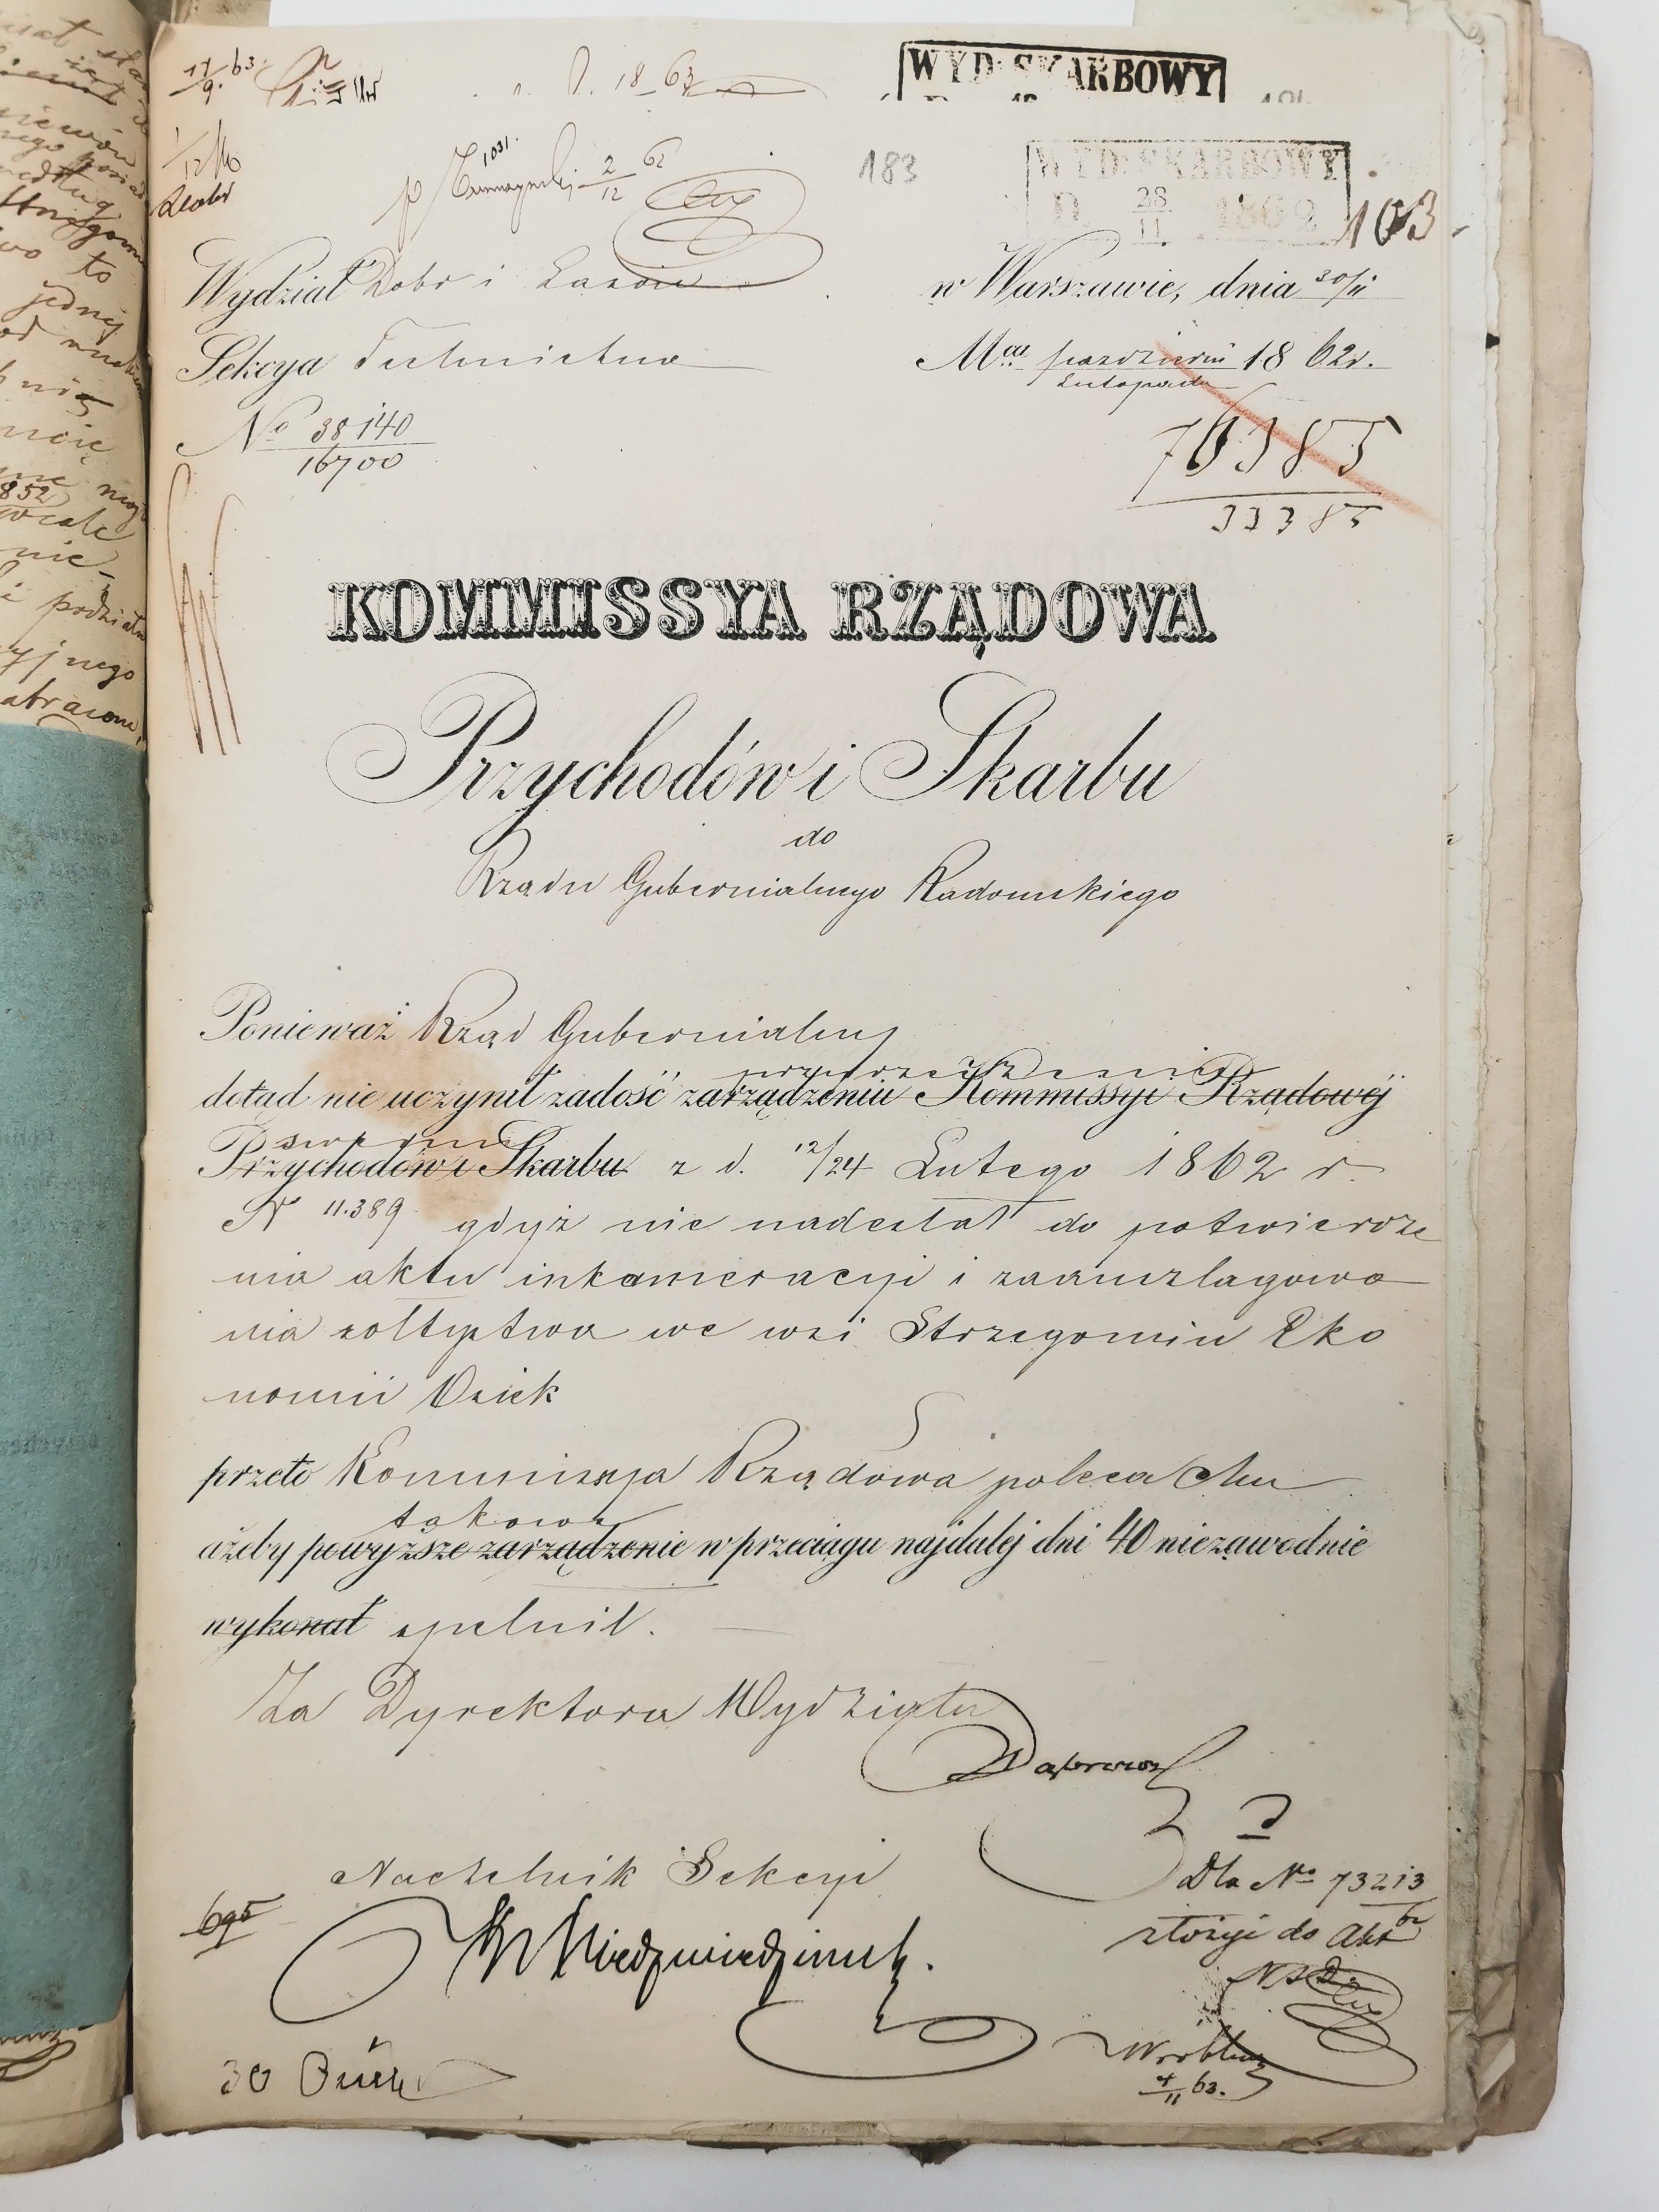 17/9 63.
18 63
WYD. SKARBOWY
1/12
1031.
2/12 62
183
WYD. SKARBOWY
D. 28/11 1862
103
Wydział Dobr i Lasów
w Warszawie, dnia 30/11
Sekcya Techniczna
Mca pazdzierni 18 62 r.
Listopada
No 38140
16700
76385
33385
KOMMISSYA RZĄDOWA
Przychodów i Skarbu
do
Rządu Gubernialnego Radomskiego
Ponieważ Rząd Gubernialny
dotąd nie uczynił zadość zarządzeniu Kommissyi Rządowéj
swemu
Przychodów i Skarbu z d. 12/24 Lutego 1862 r.
N 11.389 gdyż nie nadesłał do potwierdze
nia aktu inkameracyi i zaanszlagowa
nia sołtystwa we wsi Strzegomiu Eko
nomii Osiek
przeto Kommissya Rządowa poleca Mu
takowe
ażeby powyższe zarządzenie w przeciągu najdaléj dni 40 niezawodnie
wykonał spełnił.
Za Dyrektora Wydziału
Dąbrowski
Naczelnik Sekcyi
Dla No 73213
złożyć do Akt
695
Niedzwiedzinski.
4/11 63.
30 Osiek